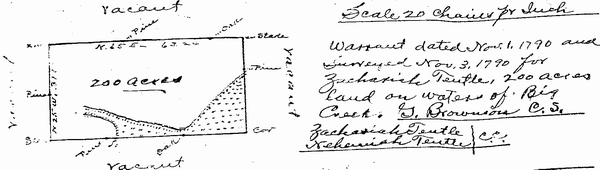 vacant
Pine
Oak
X
N. 65 E. 63.24
Stake
200 acres
Pine
Pine
N 25 W. 31
vacant
Pine
Oak
Cor
vacant
Scale 20 Chains pr Inch
Warrant dated Nov. 1. 1790 and
surveyed Nov. 3. 1790 for
Zachariah Teutle, 200 acres
land on waters of Big
Creek. G. Brownson C. S.
Zachariah Teutle
Nehemiah Teutle
C.C.